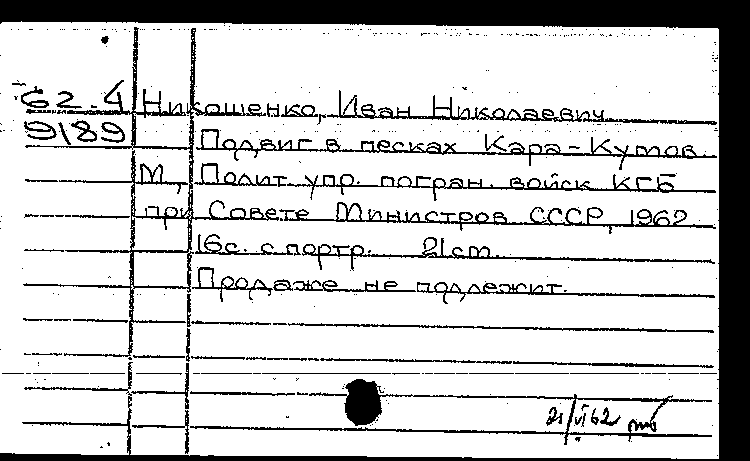 62-4 Никошенко, Иван Николаевич
9189 Подвиг в песках Кара-Кумов
М., Полит. упр. погран. войск КГБ
при Совете Министров СССР, 1962
16с. с портр. 21cm.
Продаже не подлежит.
21/VI 62